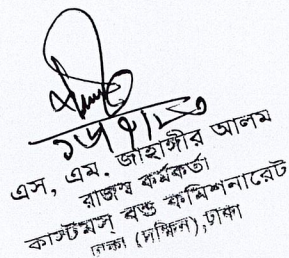 এস, এম. জাহাঙ্গীর আলম
রাজস্ব কর্মকর্তা
কাস্টমস্ বন্ড কমিশনারেট
(দক্ষিন), ঢাকা